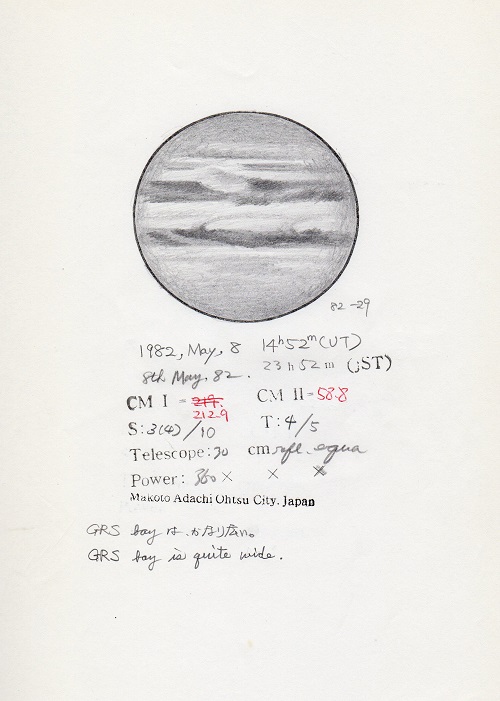 82-29
1982, May, 8 14h52m (UT)
8th May, 82. 23h52m (JST)
CM I = 219. CM II = 58.8
212.9
S: 3(4)/10 T: 4/5
Telescope: 30 cm refl. equa
Power: 360× × ×
Makoto Adachi Ohtsu City. Japan
GRS bay は かなり広い。
GRS bay is quite wide.